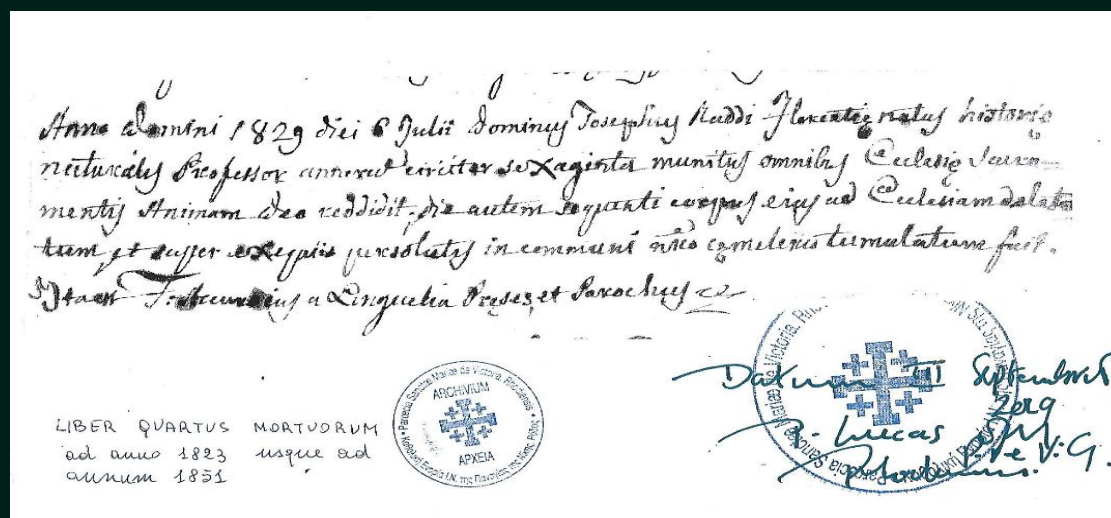 Anno Domini 1829 diei 6 Julii Dominus Josephus Raddi Florentię natus historię
naturalis Professor annorum circiter sexaginta munitus omnibus Ecclesię Sacra-
mentis Animam Deo reddidit, die autem sequenti corpus ejus ad Ecclesiam dela
tum, et super exequiis persolutis in communi nřo cęmeterio tumulatum fuit.
Ita est a Linguelia Pręses, et Parochus
LIBER QUARTUS MORTUORUM
ad anno 1823 usque ad
annum 1851
Parœcia Sanctae Mariae de Victoria, Rhodiensis
ARCHIVIUM
ΑΡΧΕΙΑ
Datum III Septembris
2019
Lucas
V.G.